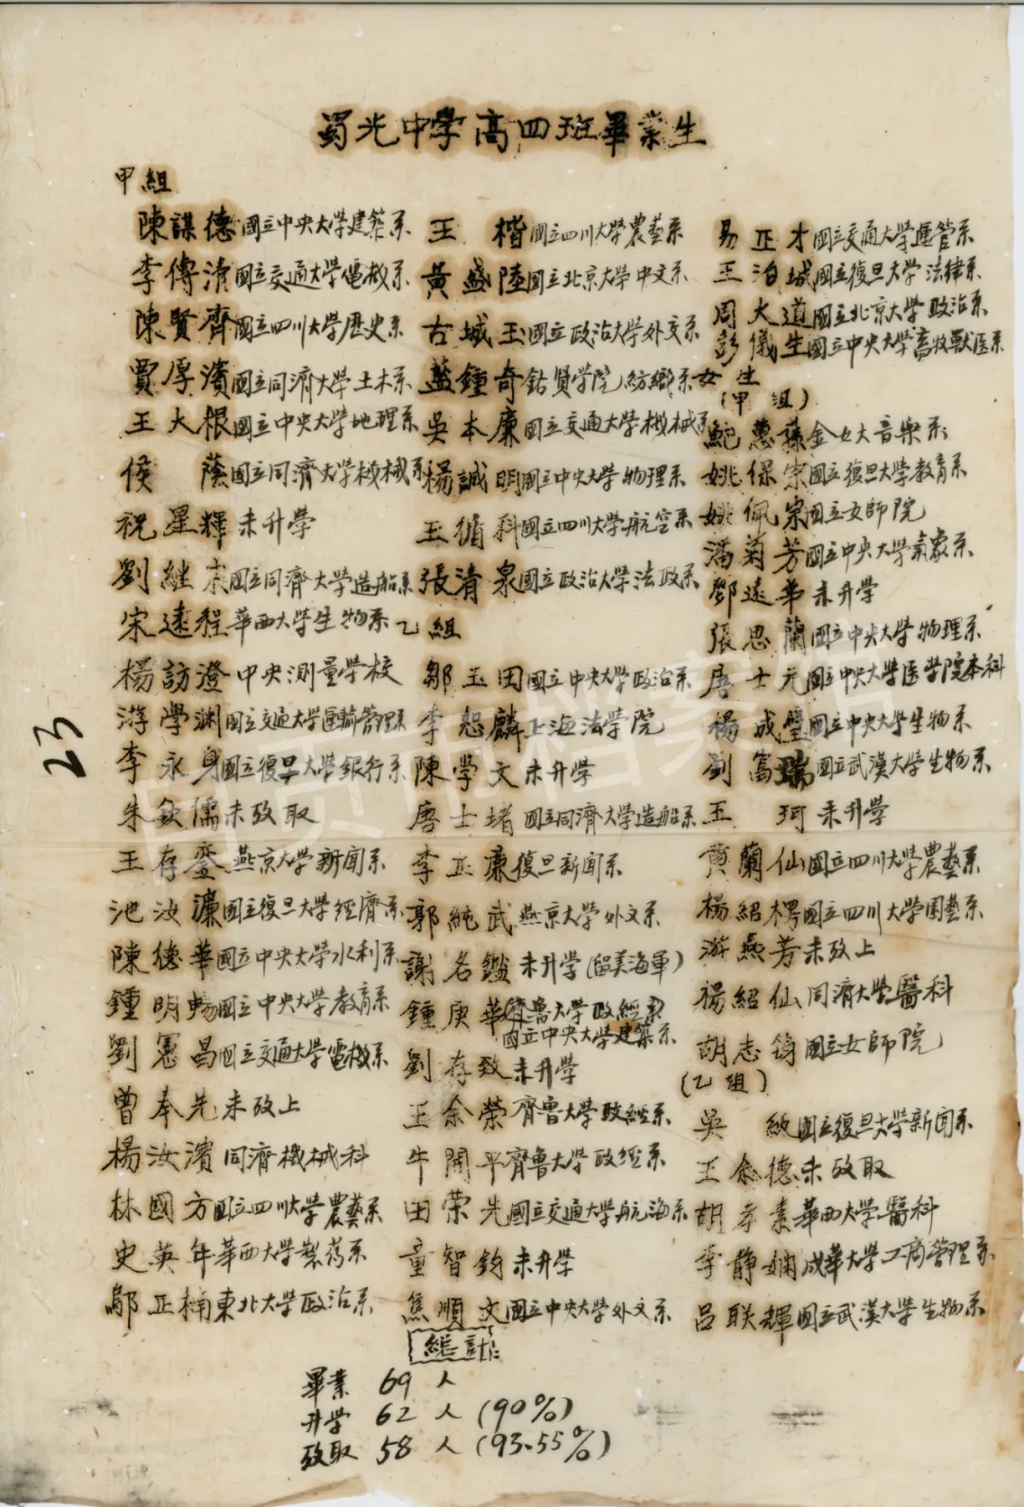 蜀光中学高四班畢業生
甲組
陳謀德國立中央大学建築系
李傳清國立交通大学電機系
陳賢齊國立四川大学歷史系
賈厚濱國立同濟大学土木系
王大根國立中央大学地理系
侯 蔭國立同濟大学機械系
祝星輝未升學
劉継 國立同濟大学造船系
宋遠程華西大学生物系
楊訪澄中央測量学校
游學渊國立交通大学運輸管理系
李永身國立復旦大學銀行系
朱欽儒未攷取
王存 燕京大学新聞系
池汝濂國立復旦大学經濟系
陳德華國立中央大学水利系
鍾明暢國立中央大学教育系
劉憲昌國立交通大学電機系
曾奉先未攷上
楊汝濱同濟機械科
林國方國立四川大学農藝系
史英年華西大学製葯系
鄔正楠東北大学政治系
王 楷國立四川大学農藝系
黃盛陸國立北京大学中文系
古城玉國立政治大学外交系
藍鍾奇銘賢学院紡織系
吳本廉國立交通大学機械系
楊誠明國立中央大学物理系
王循科國立四川大学航空系
張清泉國立政治大学法政系
乙組
鄒玉田國立中央大学政治系
李恕麟上海法学院
陳學文未升学
唐士堵國立同濟大学造船系
李正廉復旦新聞系
郭純武燕京大学外文系
謝名鑑未升学(留美海軍)
鍾庚華齊魯大学政經系
國立中央大学建築系
劉存致未升学
王余榮齊魯大学政經系
牛開平齊魯大学政經系
田荣先國立交通大学航海系
童智鈞未升学
焦順文國立中央大学外文系
易正才國立交通大学運管系
王泊城國立復旦大学法律系
周大道國立北京大学政治系
彭儀生國立中央大学畜牧獸医系
女生
(甲組)
鮑蕙蓀金女大音樂系
姚保宗國立復旦大学教育系
姚佩宗國立女師院
潘菊芳國立中央大学氣象系
鄧遠華未升学
張思蘭國立中央大学物理系
唐士元國立中央大学医学院本科
楊成璧國立中央大学生物系
劉富瑞國立武漢大学生物系
王 珂未升学
黄蘭仙國立四川大学農藝系
楊紹樗國立四川大学園藝系
游燕芳未攷上
楊紹仙同濟大学醫科
胡志筠國立女師院
(乙組)
吳 敏國立復旦大学新聞系
王余德未攷取
胡孝素華西大学醫科
李静嫻成華大学工商管理系
吕联輝國立武漢大学生物系
總計:
畢業 69 人
升学 62 人 (90%)
攷取 58 人 (93.55%)
23